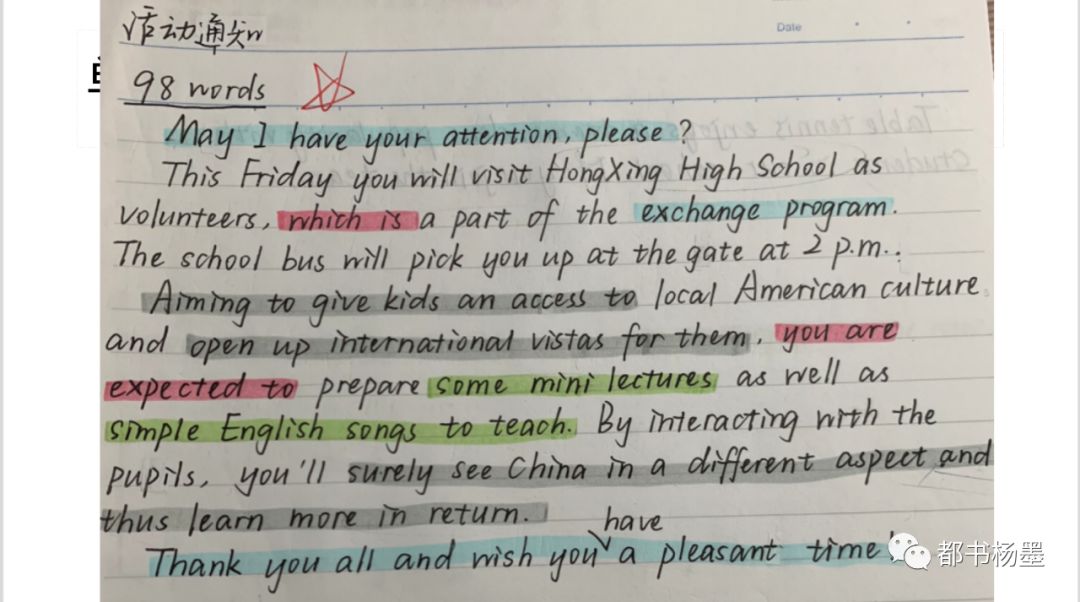 活动通知
Date
98 words
May I have your attention, please?
This Friday you will visit HongXing High School as
volunteers, which is a part of the exchange program.
The school bus will pick you up at the gate at 2 p.m..
Aiming to give kids an access to local American culture
and open up international vistas for them, you are
expected to prepare some mini lectures as well as
simple English songs to teach. By interacting with the
pupils, you'll surely see China in a different aspect and
thus learn more in return.
have
Thank you all and wish you a pleasant time!
都书杨墨